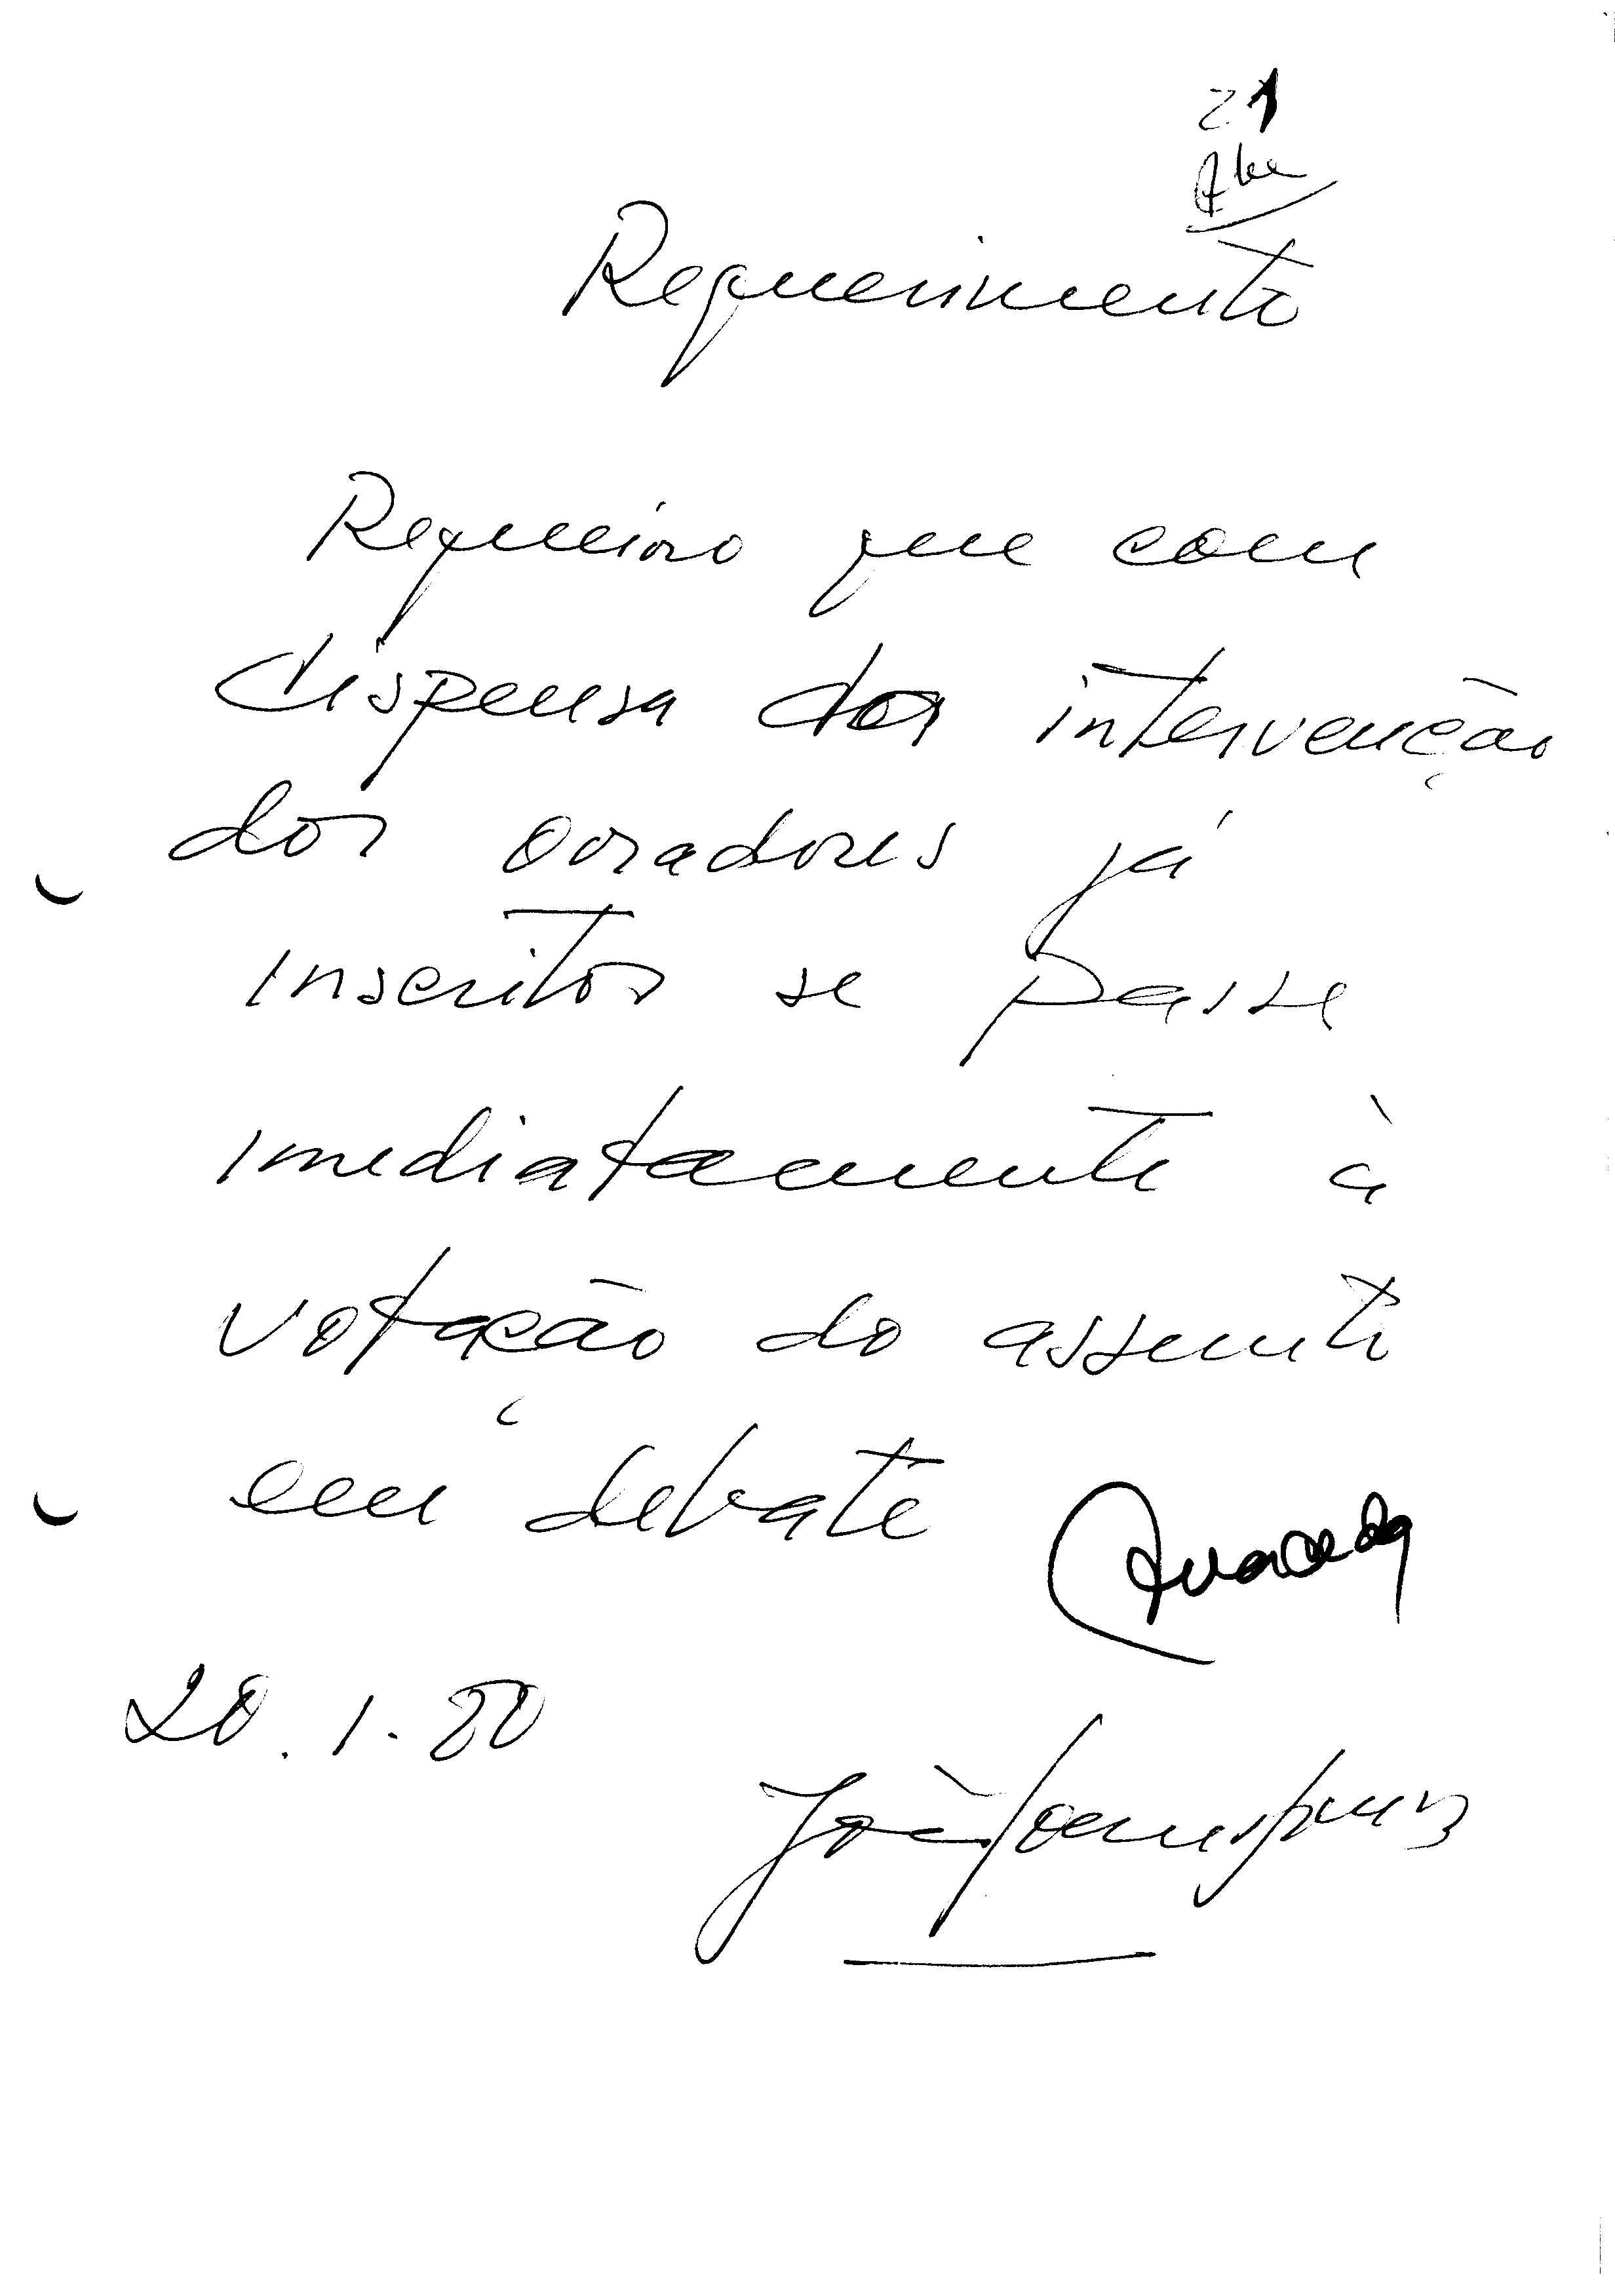 21
Requerimento
Requeiro que com
dispensa da intervenção
dos oradores já
inscritos se passe
imediatamente à
votação do assunto
em debate
20.1.80
João